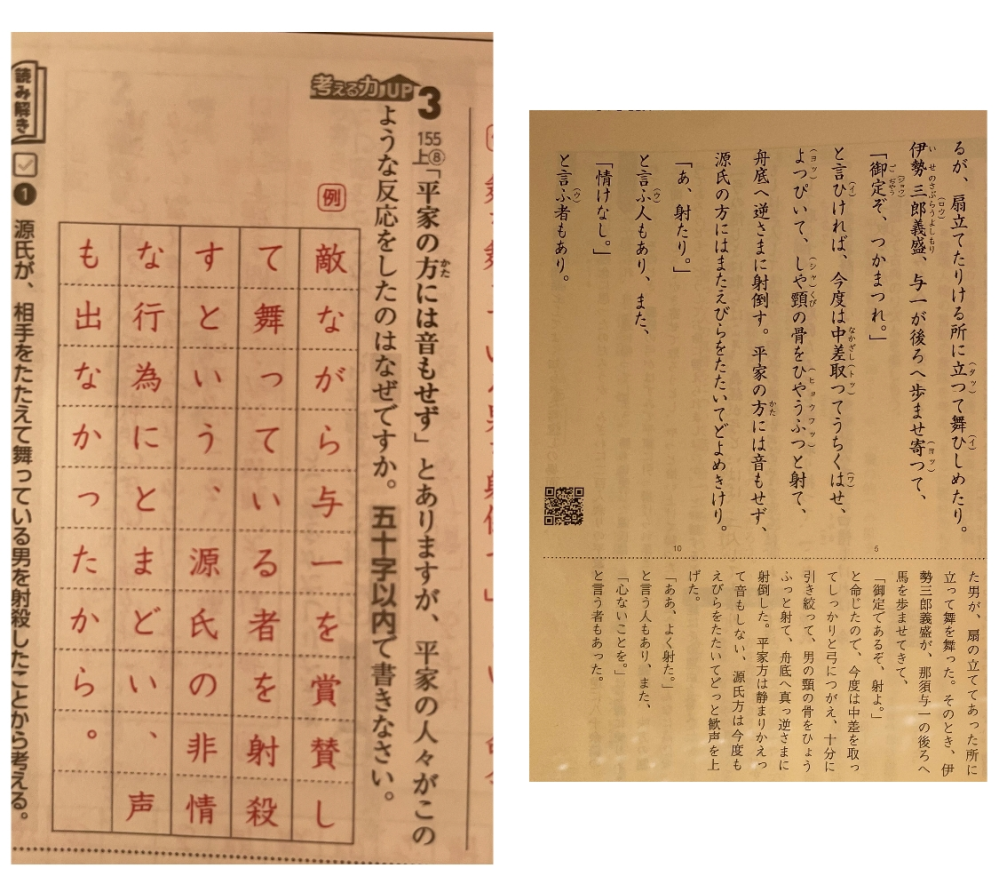 3
155上⑧「平家の方には音もせず」とありますが、平家の人々がこの
かた
考える力UP
ような反応をしたのはなぜですか。五十字以内で書きなさい。
例
敵ながら与一を賞賛し
て舞っている者を射殺
すという、源氏の非情
な行為にとまどい、声
も出なかったから。
読み解き
❶ 源氏が、相手をたたえて舞っている男を射殺したことから考える。
るが、扇立てたりける所に立つて舞ひしめたり。
(タッ)
(イ)
伊勢三郎義盛、与一が後ろへ歩ませ寄つて、
いせのさぶらうよしもり
(ロウ)
(ヨッ)
「御定ぞ、つかまつれ。」
ごぢやう
(ジョウ)
と言ひければ、今度は中差取つてうちくはせ、
(イ)
なかざし
(トッ)
(ワ)
よつぴいて、しや頸の骨をひやうふつと射て、
(ヨッ)
(シャ)
くび
(ヒョウフッ)
舟底へ逆さまに射倒す。平家の方には音もせず、
かた
源氏の方にはまたえびらをたたいてどよめきけり。
「あ、射たり。」
と言ふ人もあり、また、
(ウ)
「情けなし。」
と言ふ者もあり。
(ウ)
5
10
た男が、扇の立ててあった所に
立って舞を舞った。そのとき、伊
勢三郎義盛が、那須与一の後ろへ
馬を歩ませてきて、
「御定であるぞ、射よ。」
と命じたので、今度は中差を取っ
てしっかりと弓につがえ、十分に
引き絞って、男の頸の骨をひょう
ふっと射て、舟底へ真っ逆さまに
射倒した。平家方は静まりかえっ
て音もしない、源氏方は今度も
えびらをたたいてどっと歓声を上
げた。
「ああ、よく射た。」
と言う人もあり、また、
「心ないことを。」
と言う者もあった。